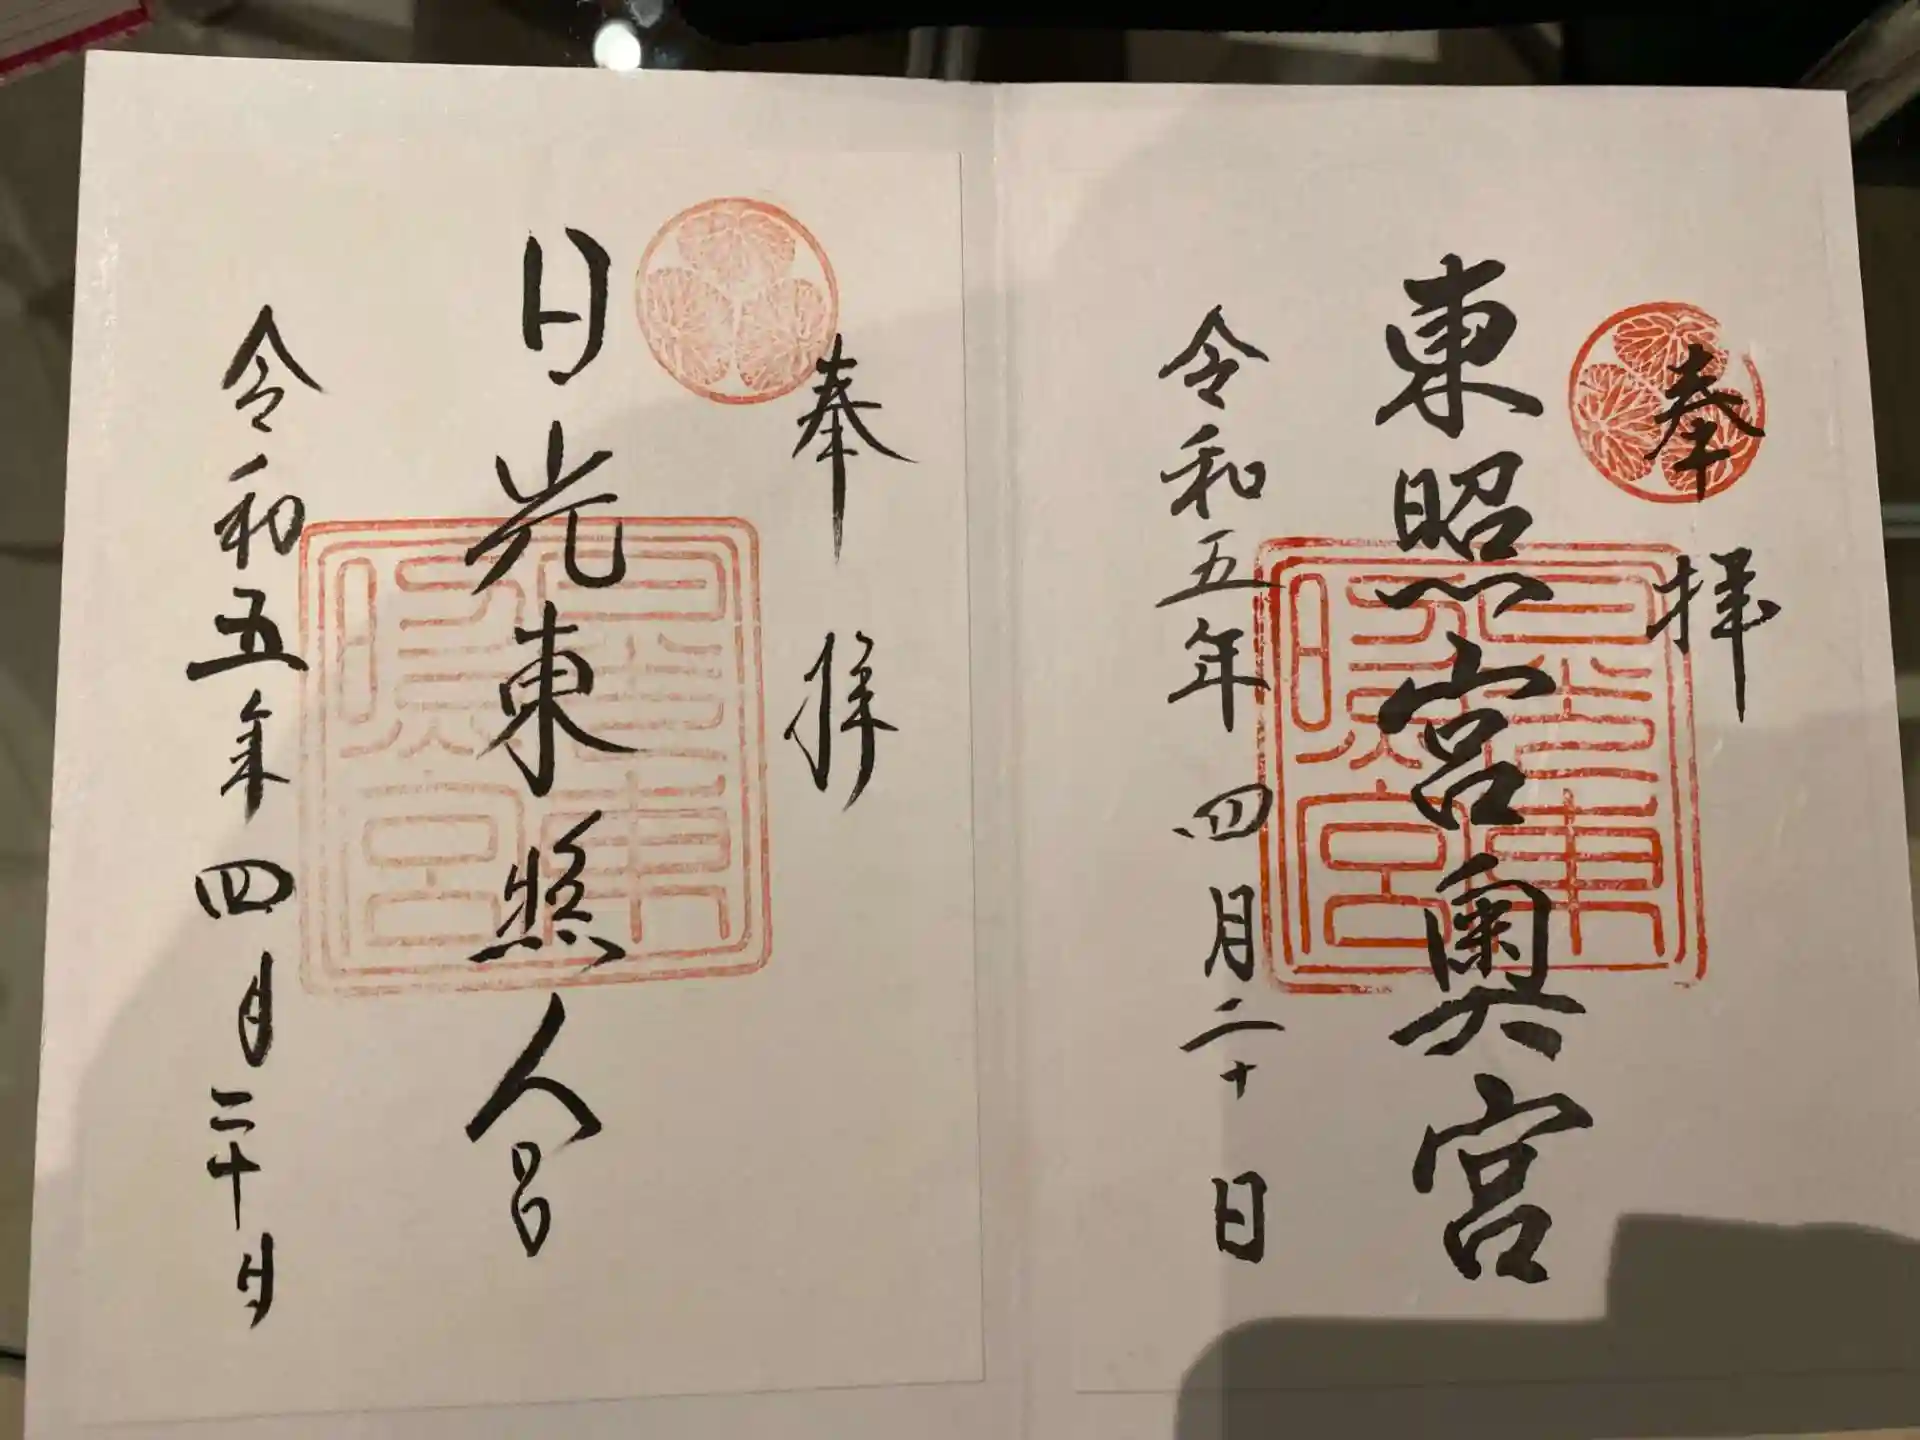 奉拝
東照宮奥宮
令和五年四月二十日
奉拝
日光東照宮
令和五年四月二十日
日光東照宮
日光東照宮